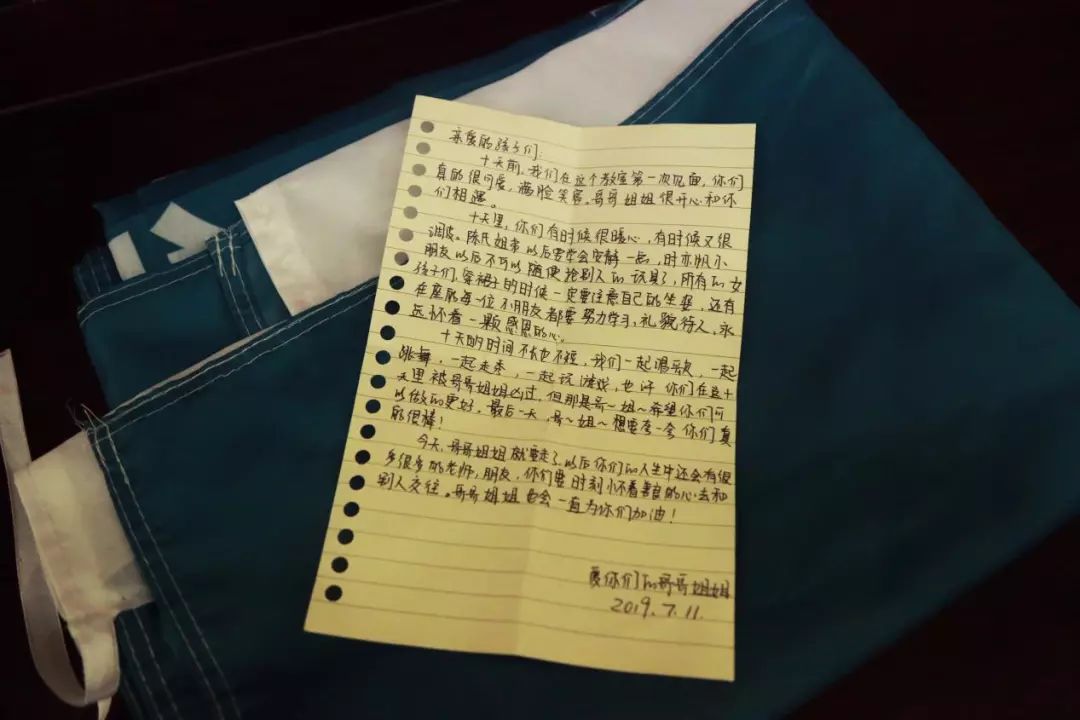 亲爱的孩子们:
十天前,我们在这个教室第一次见面,你们
真的很可爱,满脸笑容。哥哥姐姐很开心和你
们相遇。
十天里,你们有时候很暖心,有时候又很
调皮。陈氏姐弟以后要学会安静一些,时亦帆小
朋友以后不可以随便抢别人的玩具了,所有的女
孩子们,穿裙子的时候一定要注意自己的坐姿,还有
在座的每一位小朋友都要努力学习,礼貌待人,永
远怀着一颗感恩的心。
十天的时间不长也不短,我们一起唱歌,一起
跳舞,一起走秀,一起玩游戏,也许你们在这十
天里被哥哥姐姐凶过,但那是哥~姐~希望你们可
以做的更好。最后一天,哥~姐~想要夸一夸你们真
的很棒!
今天,哥哥姐姐就要走了,以后你们的人生中还会有很
多很多的老师,朋友,你们要时刻怀着善良的心去和
别人交往。哥哥姐姐也会一直为你们加油!
爱你们的哥哥姐姐
2019.7.11.